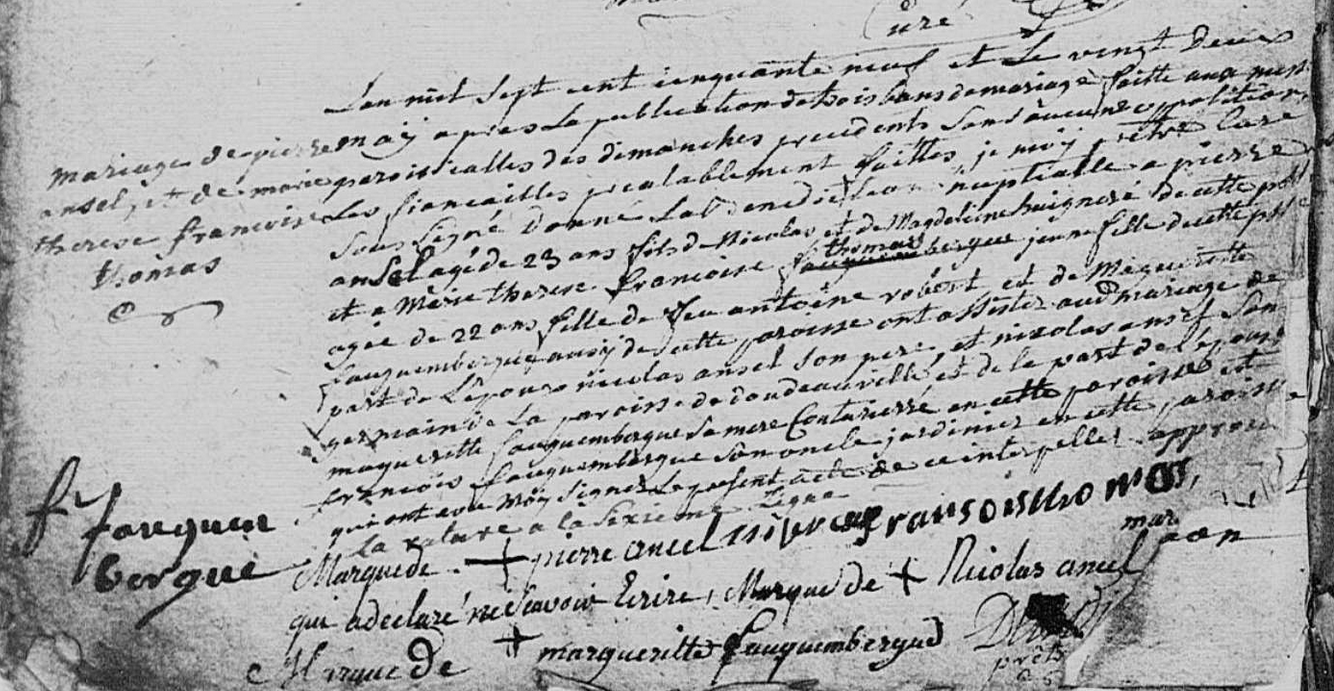 Curé
mariage de pierre
ansel, et de marie
therese francoise
thomas
L'an mil sept cent cinquante neuf et Le vingt deux
may apres La publication de trois bans de mariage faitte aux
paroissialles des dimanches precedents Sans aucune opposition
Les fiancailles prealablement faittes, je moy prêtre Curé
Sous Signé Donné La benediction nuptialle a pierre
ansel agé de 23 ans fils de Nicolas et de Magdeleine de cette
et a Marie therese francoise thomas jeune fille de cette
agée de 22 ans fille de feu antoine robert et de Marguerite
fauquembergue aussy de cette paroisse ont assistez audit mariage de
part de L'epoux nicolas ansel Son pere, et nicolas ansel Son
germain de La paroisse de doudeauville, et de la part de L'epouse
marguerite fauquembergue Sa mere Couturiere en cette paroisse et
francois fauquembergue Son oncle jardinier en cette paroisse
qui ont avec Moy Signez Le present acte de ce interpellez approuvé
La rature a la Sixieme Ligne
f fauquem
bergue
Marque de + pierre ancel fransois thomas,
qui a declaré ne Scavoir Ecrire, Marque de + Nicolas ancel
Marque de + margueritte fauquembergue